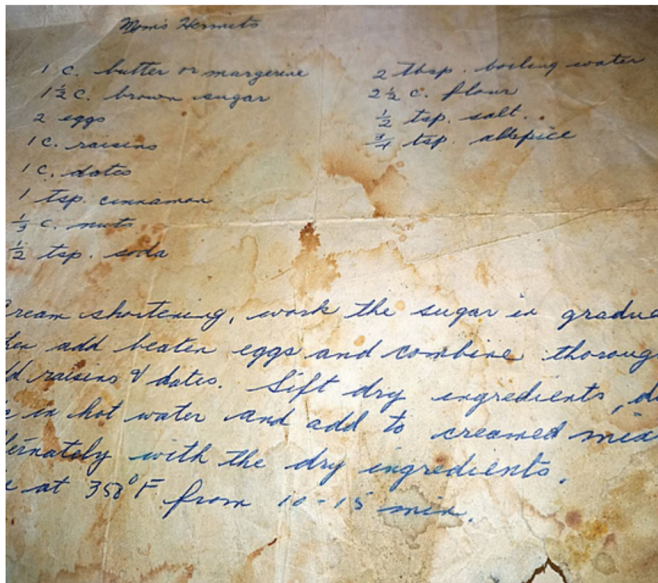 Mom's Hermits
1 c. butter or margerine
1½ c. brown sugar
2 eggs
1 c. raisins
1 c. dates
1 tsp. cinnamon
⅓ c. nuts
½ tsp. soda
2 tbsp. boiling water
2½ c. flour
½ tsp. salt.
¾ tsp. allspice
Cream shortening, work the sugar in gradua
hen add beaten eggs and combine thoroug
dd raisins & dates. Sift dry ingredients, d
in hot water and add to creamed mix
lternately with the dry ingredients.
e at 350°F from 10-15 min.